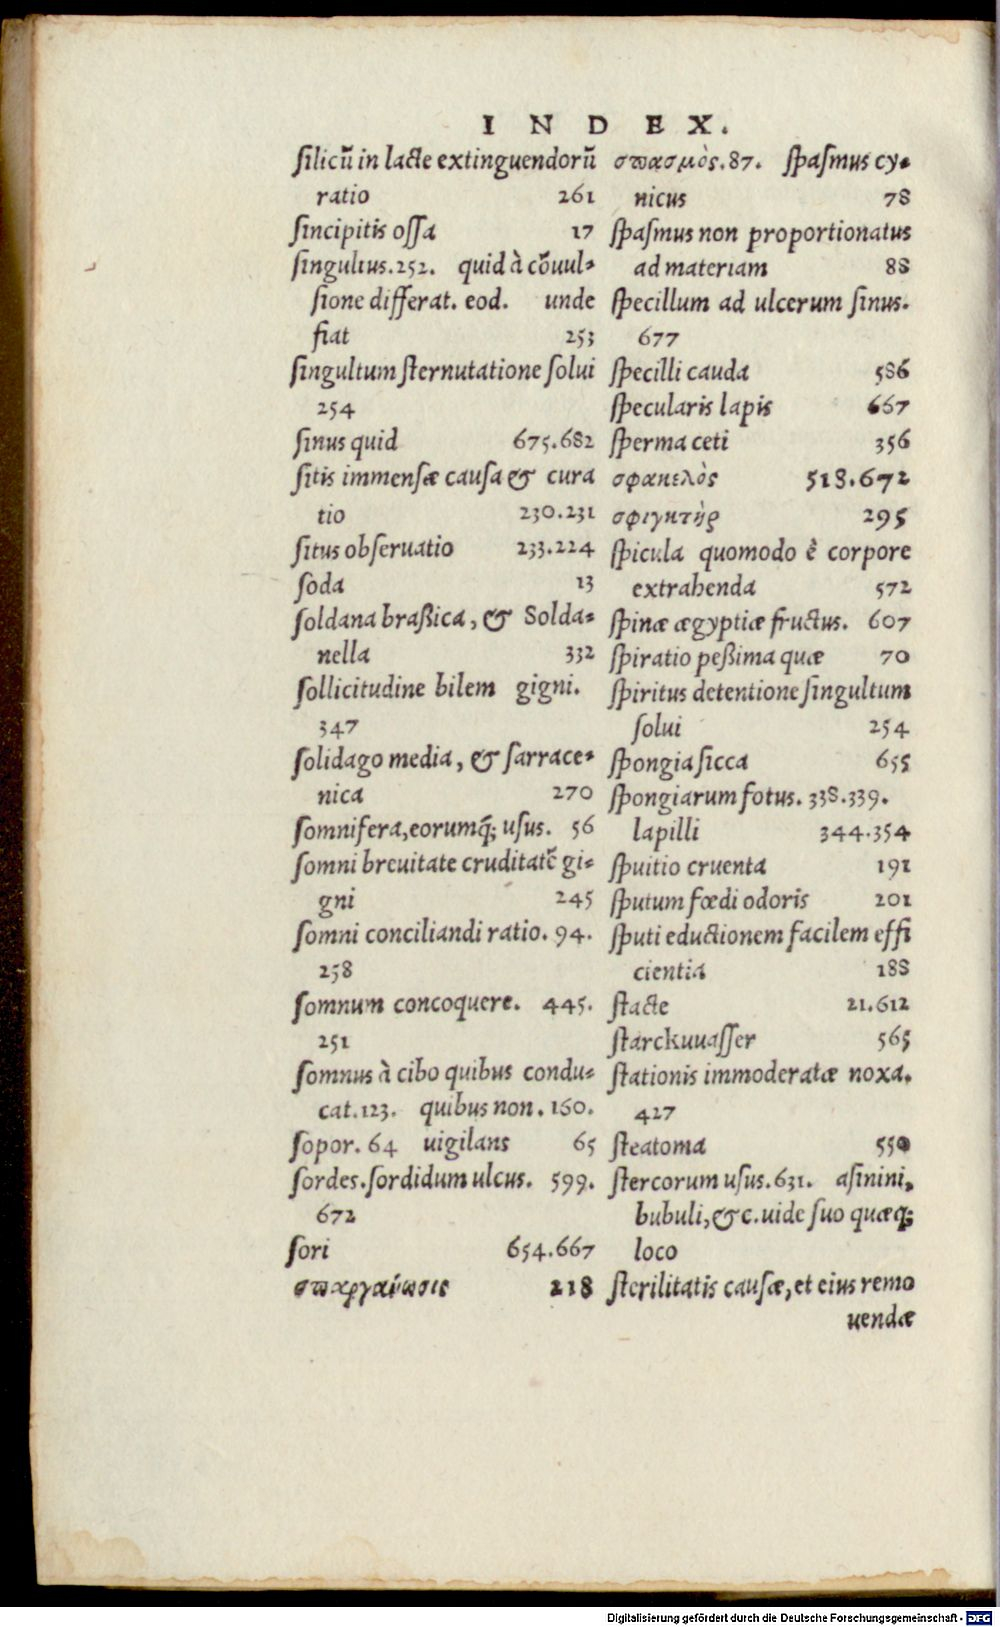 INDEX.
ſilicū in lacte extinguendorū
ratio 261
ſincipitis oſſa 17
ſingultus.252. quid à cōuul-
ſione differat. eod. unde
fiat 253
ſingultum ſternutatione ſolui
254
ſinus quid 675.682
ſitis immenſæ cauſa & cura
tio 230.231
ſitus obſeruatio 233.224
ſoda 13
ſoldana braßica, & Solda-
nella 332
ſollicitudine bilem gigni.
347
ſolidago media, & ſarrace-
nica 270
ſomnifera, eorumq́; uſus. 56
ſomni breuitate cruditatē gi-
gni 245
ſomni conciliandi ratio. 94.
258
ſomnum concoquere. 445.
251
ſomnus à cibo quibus condu-
cat.123. quibus non. 160.
ſopor. 64 uigilans 65
ſordes.ſordidum ulcus. 599.
672
ſori 654.667
σπαργαύωσις 218
σπασμὸς.87. ſpaſmus cy-
nicus 78
ſpaſmus non proportionatus
ad materiam 88
ſpecillum ad ulcerum ſinus.
677
ſpecilli cauda 586
ſpecularis lapis 667
ſperma ceti 356
σφακελὸς 518.672
σφιγκτὴρ 295
ſpicula quomodo è corpore
extrahenda 572
ſpinæ ægyptiæ fructus. 607
ſpiratio peßima quæ 70
ſpiritus detentione ſingultum
ſolui 254
ſpongia ſicca 655
ſpongiarum fotus. 338.339.
lapilli 344.354
ſpuitio cruenta 191
ſputum fœdi odoris 201
ſputi eductionem facilem effi
cientia 188
ſtacte 21.612
ſtarckuuaſſer 565
ſtationis immoderatæ noxa.
427
ſteatoma 550
ſtercorum uſus.631. aſinini,
bubuli, &c. uide ſuo quæq;
loco
ſterilitatis cauſæ, et eius remo
uendæ
Digitalisierung gefördert durch die Deutsche Forschungsgemeinschaft - DFG